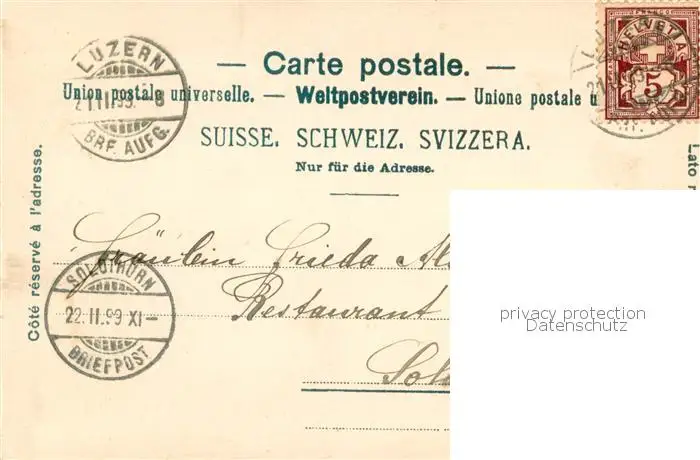 LUZERN
21.II.99.-8
BRF. AUFG.
— Carte postale. —
Union postale universelle. — Weltpostverein. — Unione postale u
SUISSE. SCHWEIZ. SVIZZERA.
Nur für die Adresse.
HELVETIA
5
Côté réservé à l'adresse.
Lato r
Fräulein Frieda
Restaurant
Sol
SOLOTHURN
22.II.99 XI-
BRIEFPOST
privacy protection
Datenschutz